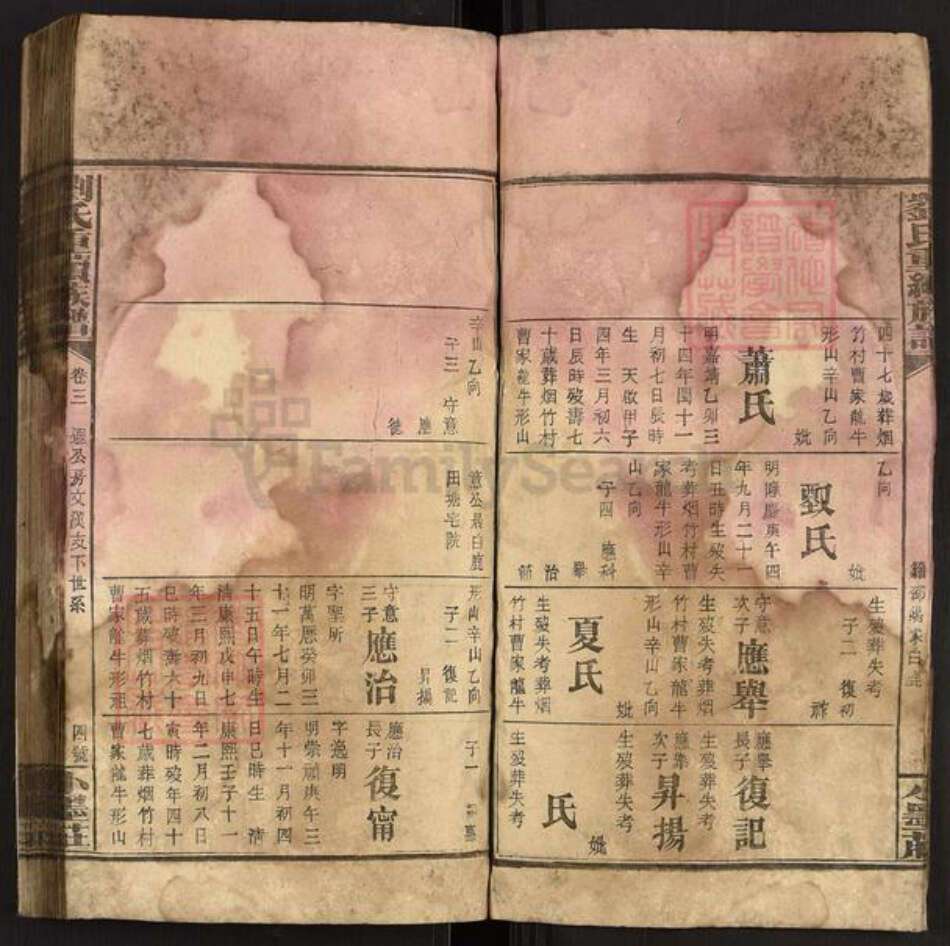 劉氏重編族譜
四十七歲葬烟
竹村曹家龍牛
形山辛山乙向
妣
蕭氏
明嘉靖乙卯三
十四年閏十一
月初七日辰時
生 天啟甲子
四年三月初六
日辰時歿壽七
十歲葬烟竹村
曹家龍牛形山
乙向
妣
甄氏
明隆慶庚午四
年九月二十一
日丑時生歿失
考葬烟竹村曹
家龍牛形山辛
山乙向
子四 應科
舉
治
生歿葬失考
子二 復初
守意
次子
應舉
生歿失考葬烟
竹村曹家龍牛
形山辛山乙向
妣
夏氏
生歿失考葬烟
竹村曹家龍牛
應舉
長子
復記
生歿葬失考
應舉
次子
昇揚
生歿葬失考
妣
氏
生歿葬失考
辛山乙向
子三 守意
應
意公居白鹿
田塘宅院
形山辛山乙向
子二 復記
昇揚
守意
三子
應治
字聖所
明萬曆癸卯三
十一年七月二
十五日午時生
清康熙戊申七
年三月初九日
巳時歿壽六十
五歲葬烟竹村
曹家龍牛形祖
子一
應治
長子
復甯
字逸明
明崇禎庚午三
年十一月初四
日巳時生 清
康熙壬子十一
年二月初八日
寅時歿年四十
七歲葬烟竹村
曹家龍牛形山
劉氏重編族譜
卷三
選公房文漢支下世系
四號
小墨莊